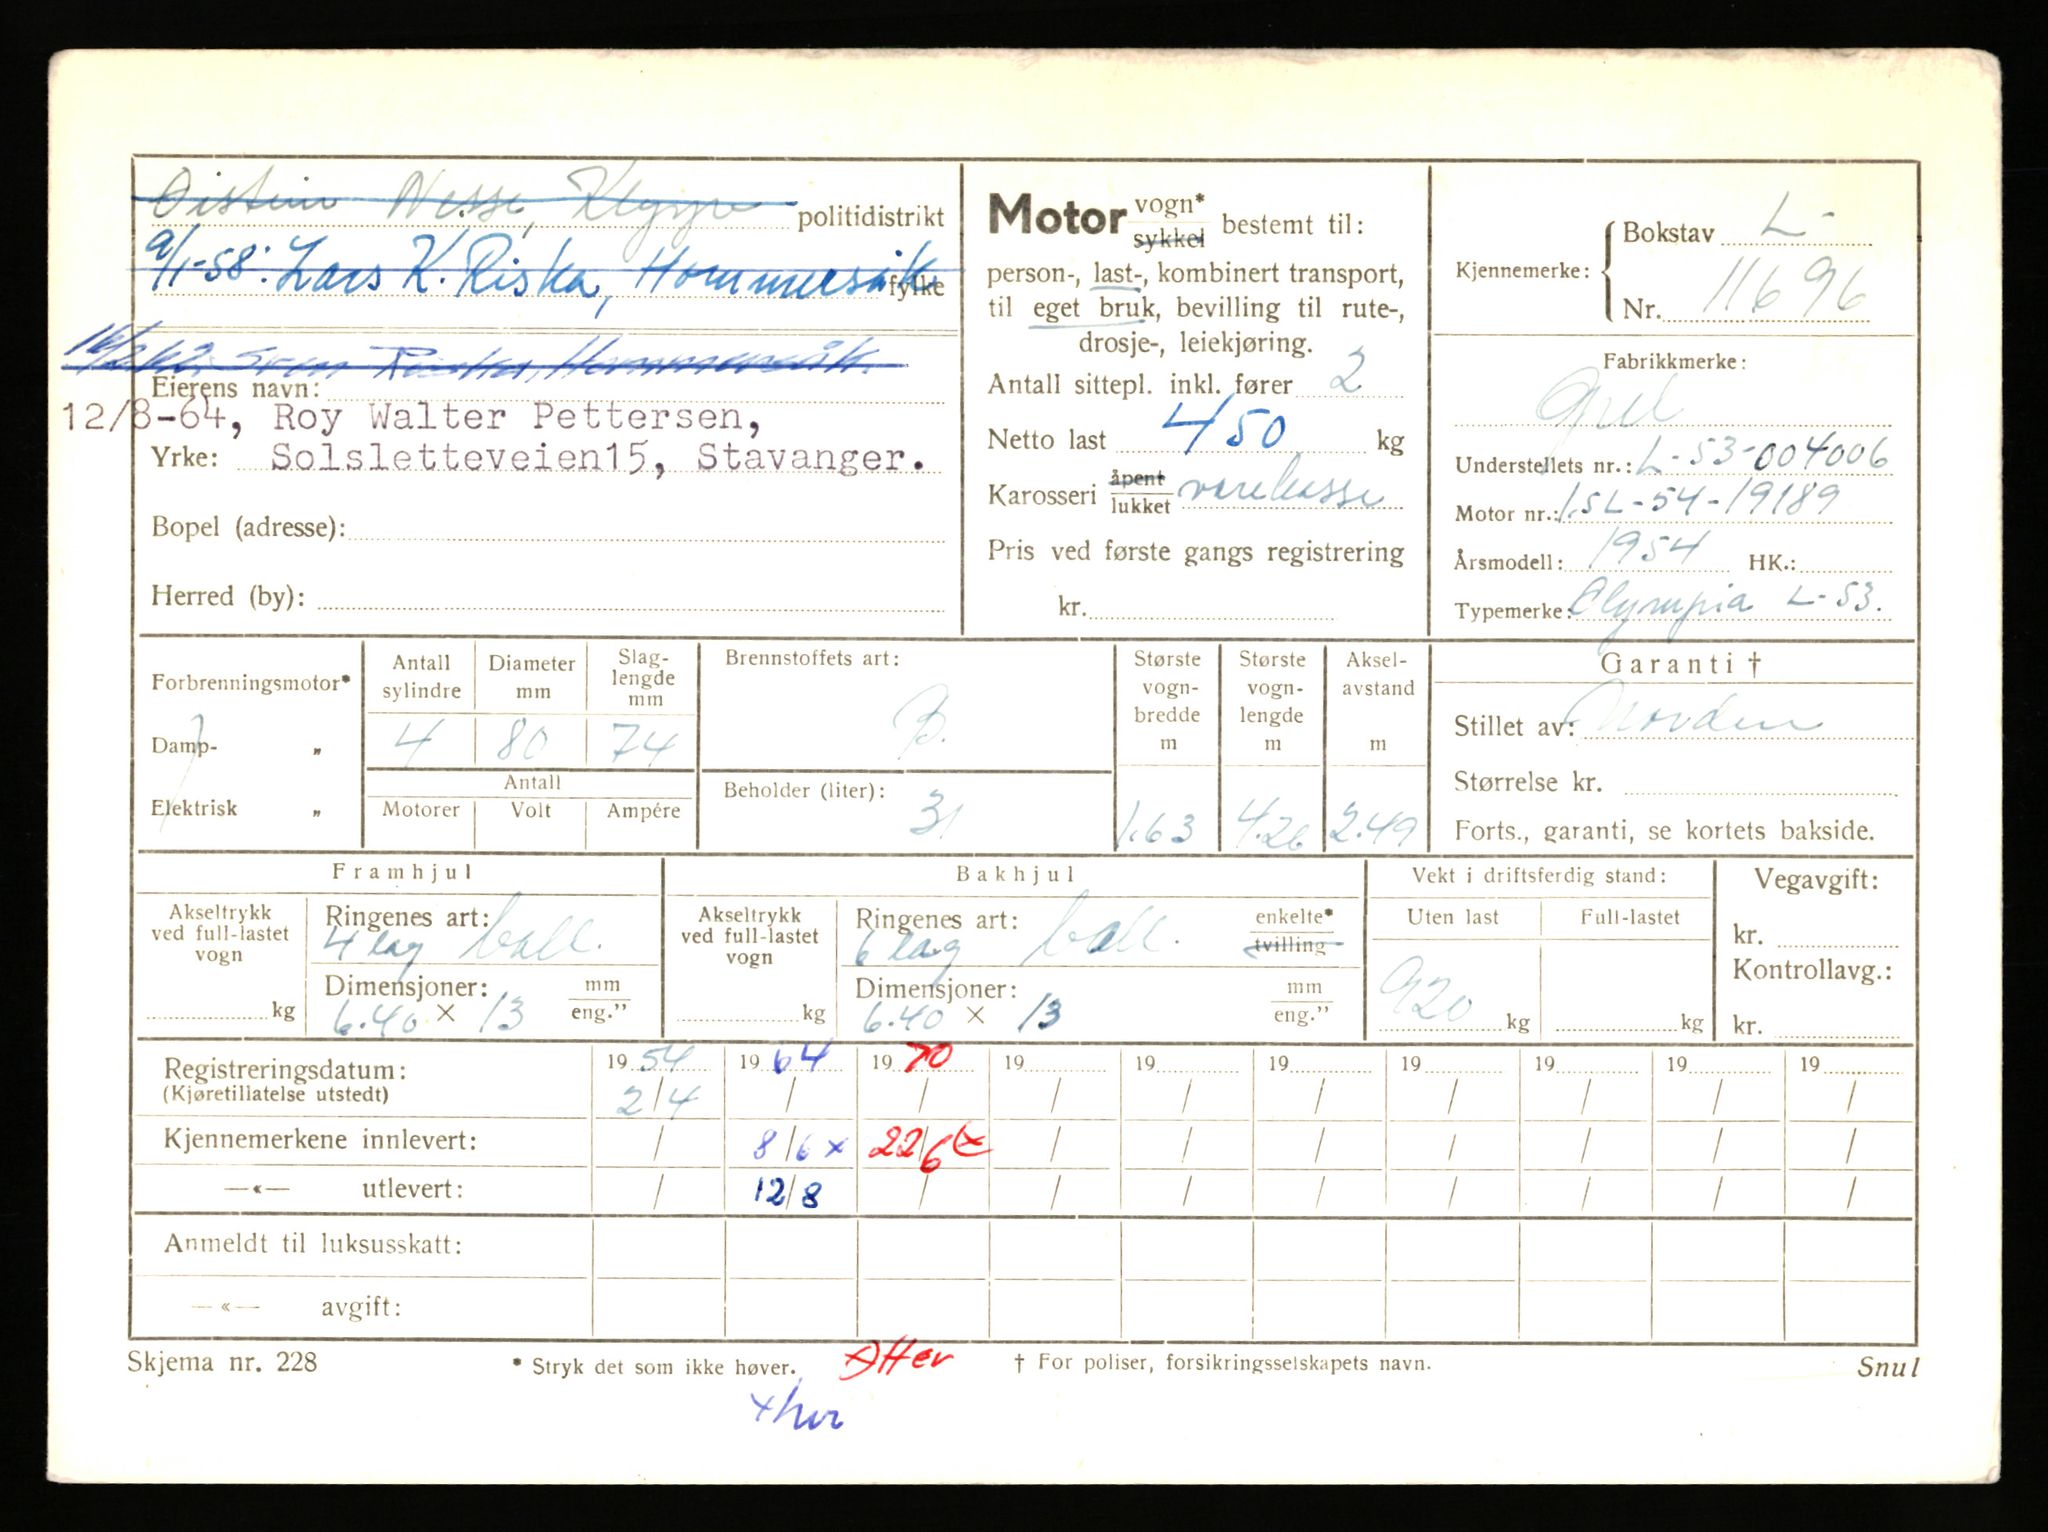 Øistein Nesse, Klepp politidistrikt
9/1-58: Lars K. Riska, Hommersåk fylke
16/2-62, Sven Riska, Hommersåk.
Eierens navn:
12/8-64, Roy Walter Pettersen,
Yrke: Solsletteveien15, Stavanger.
Bopel (adresse):
Herred (by):
Motor vogn* sykkel bestemt til:
person-, last-, kombinert transport,
til eget bruk, bevilling til rute-,
drosje-, leiekjøring.
Antall sittepl. inkl. fører 2
Netto last 450 kg
Karosseri åpent lukket varekasse
Pris ved første gangs registrering
kr.
Kjennemerke: Bokstav L-
Nr. 11696
Fabrikkmerke:
Opel
Understellets nr.: L-53-004006
Motor nr.: 1.5L-54-19189
Årsmodell: 1954 HK.:
Typemerke: Olympia L-53.
Forbrenningsmotor*
Damp- „
Elektrisk „
Antall sylindre Diameter mm Slag-lengde mm
4 80 74
Antall
Motorer Volt Ampére
Brennstoffets art:
B.
Beholder (liter):
31
Største vogn-bredde m
1.63
Største vogn-lengde m
4.26
Aksel-avstand m
2.49
Garanti †
Stillet av: Norden
Størrelse kr.
Forts., garanti, se kortets bakside.
Framhjul
Akseltrykk ved full-lastet vogn
kg
Ringenes art:
4 lag ball.
Dimensjoner: mm
6.40 × 13 eng."
Bakhjul
Akseltrykk ved full-lastet vogn
kg
Ringenes art: enkelte*
6 lag ball. tvilling
Dimensjoner: mm
6.40 × 13 eng."
Vekt i driftsferdig stand:
Uten last Full-lastet
920 kg kg
Vegavgift:
kr.
Kontrollavg.:
kr.
Registreringsdatum: 19 54 19 64 19 70 19 19 19 19 19 19 19
(Kjøretillatelse utstedt) 2/4 / / / / / / / / /
Kjennemerkene innlevert: / 8/6 x 22/6 x / / / / / / /
—«— utlevert: / 12/8 / / / / / / / /
Anmeldt til luksusskatt:
—«— avgift:
Skjema nr. 228 * Stryk det som ikke høver. † For poliser, forsikringsselskapets navn. Snul